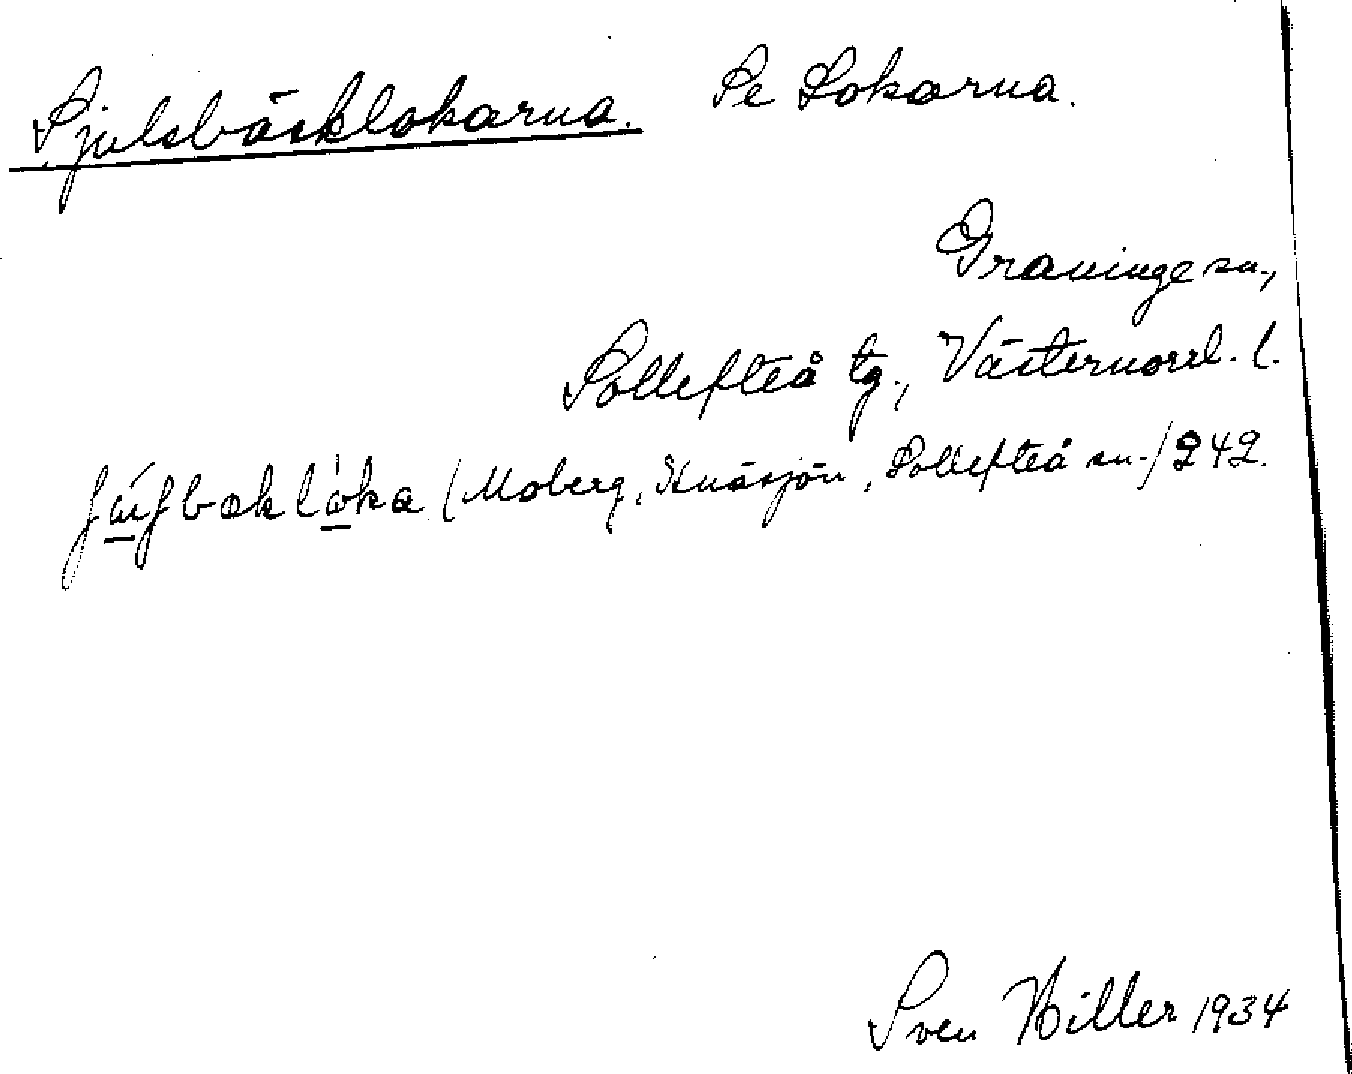 Sjulsbäcklokarna. Se Lokarna.
Graninge sn.,
Sollefteå tg., Västernorrl. l.
(Moberg, Knäsjön, Sollefteå sn.) 242.
Sven Hiller 1934